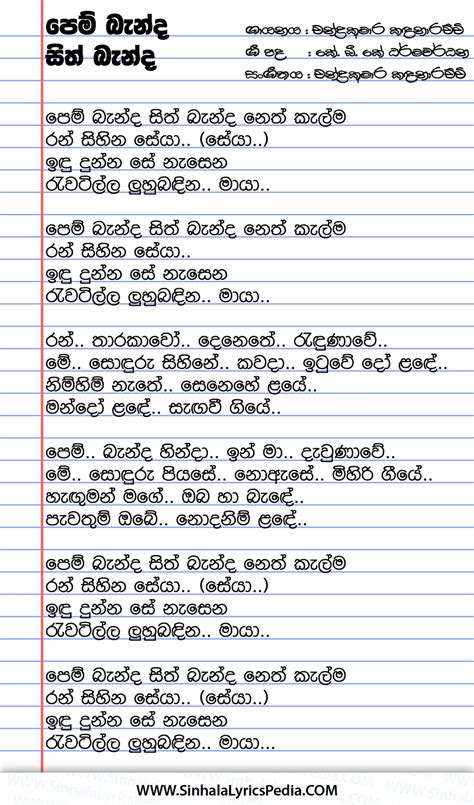 පෙම් බැන්ද
සිත් බැන්ද
ගායනය : චන්ද්‍රකුමාර කඳනාරච්චි
ගී පද : කේ. බී. කේ ධර්මවර්ධන
සංගීතය : චන්ද්‍රකුමාර කඳනාරච්චි
පෙම් බැන්ද සිත් බැන්ද නෙත් කැල්ම
රන් සිහින සේයා.. (සේයා..)
ඉඳු දුන්න සේ නැසෙන
රැවටිල්ල ලුහුබඳින.. මායා..
පෙම් බැන්ද සිත් බැන්ද නෙත් කැල්ම
රන් සිහින සේයා..
ඉඳු දුන්න සේ නැසෙන
රැවටිල්ල ලුහුබඳින.. මායා..
රන්.. තාරකාවෝ.. දෙනෙතේ.. රැඳුණාවේ..
මේ.. සොඳුරු සිහිනේ.. කවදා.. ඉටුවේ දෝ ළඳේ..
නිම්හිම් නැතේ.. සෙනෙහේ ළයේ..
මන්දෝ ළඳේ.. සැඟවී ගියේ..
පෙම්.. බැන්ද හින්දා.. ඉන් මා.. දැවුණාවේ..
මේ.. සොඳුරු පියසේ.. නොඇසේ.. මිහිරි ගීයේ..
හැඟුමන් මගේ.. ඔබ හා බැඳේ..
පැවතුම් ඔබේ.. නොදනිම් ළඳේ..
පෙම් බැන්ද සිත් බැන්ද නෙත් කැල්ම
රන් සිහින සේයා.. (සේයා..)
ඉඳු දුන්න සේ නැසෙන
රැවටිල්ල ලුහුබඳින.. මායා..
පෙම් බැන්ද සිත් බැන්ද නෙත් කැල්ම
රන් සිහින සේයා.. (සේයා..)
ඉඳු දුන්න සේ නැසෙන
රැවටිල්ල ලුහුබඳින.. මායා...
WWW.SinhalaLyricsPedia.COM